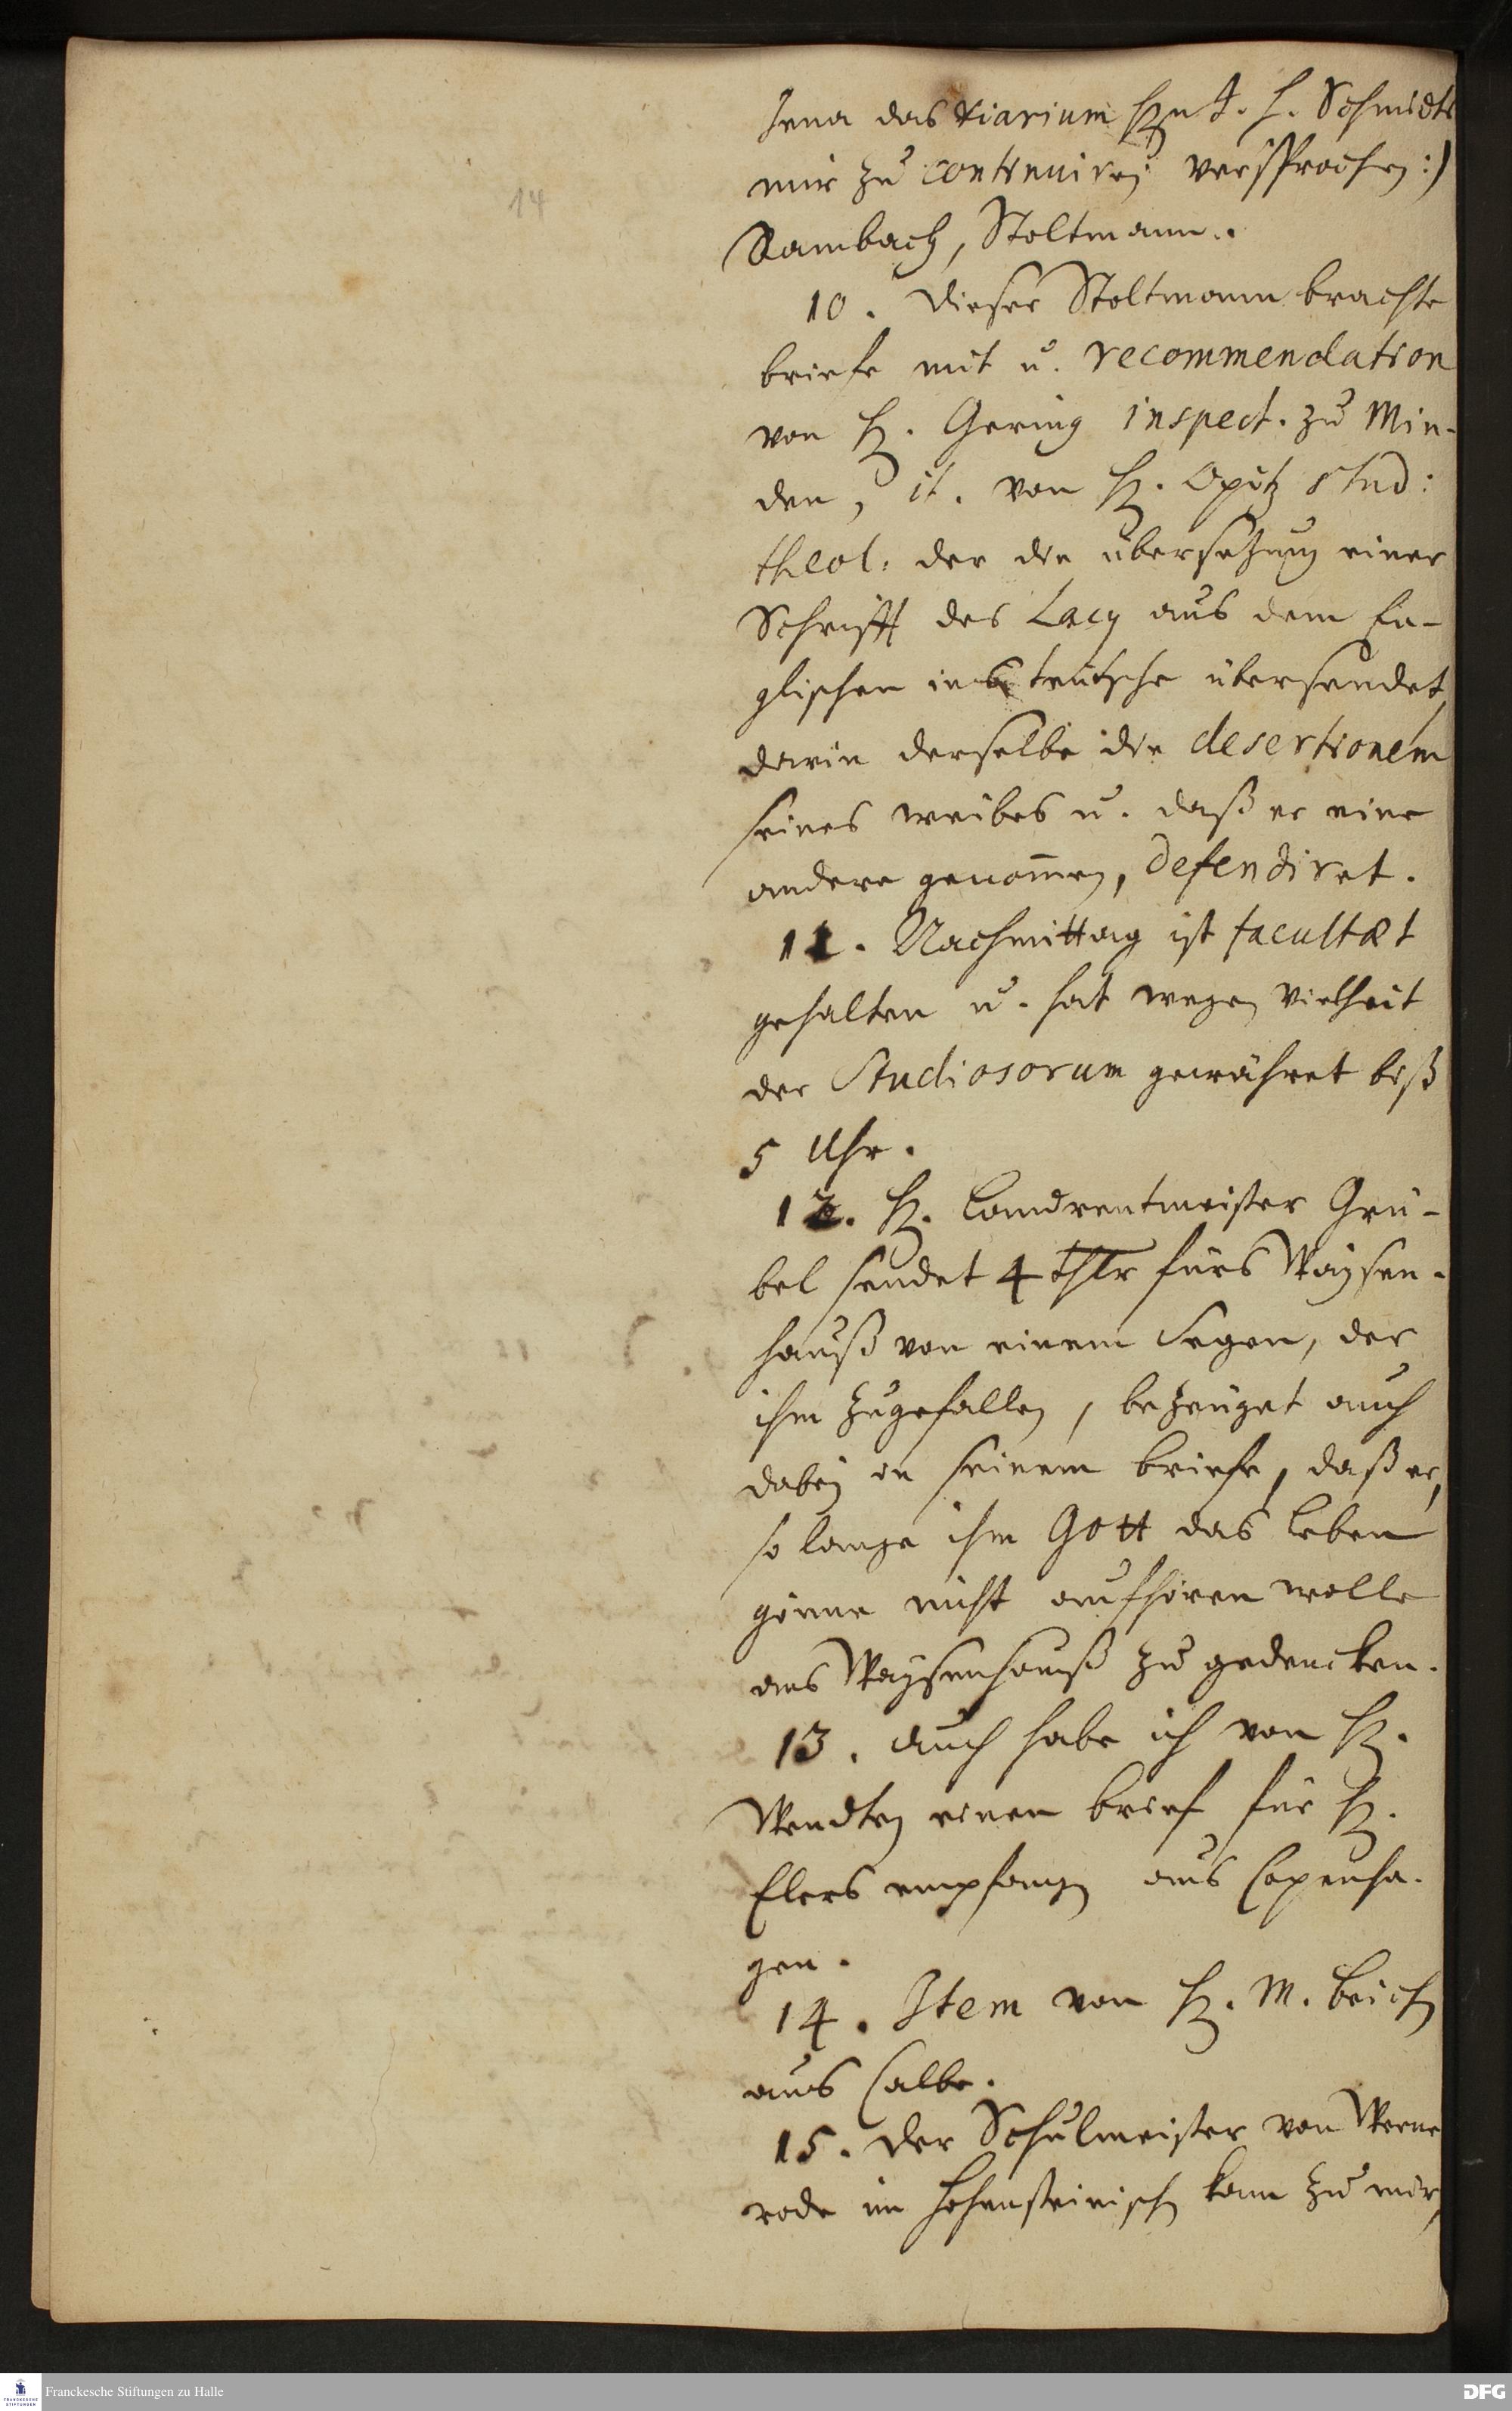 14
Jena das diarium Hn J. H. Schmidts
mir zu continuiren versprochen:)
Rambach, Stoltmann.
10. Dieser Stoltmann brachte
briefe mit u. recommendation
von H. Gering inspect. zu Min-
den, it. von H. Opitz stud:
theol. der die übersetzung einer
Schrifft des Lacy aus dem En-
glischen ins teutsche übersendet,
darin derselbe die desertionem
seines weibes u. daß er eine
andere genom̅en, defendiret.
11. Nachmittag ist facultæt
gehalten u. hat wegen vielheit
der Studiosorum gewähret biß
5 Uhr.
12. H. Landrentmeister Grü-
bel sendet 4 thlr fürs Waysen-
hauß von einem Segen, der
ihm zugefallen, bezeuget auch
dabey in seinem briefe, daß er,
so lange ihm Gott das leben
gönne nicht aufhören wolle
ans Waysenhauß zu gedencken.
13. auch habe ich von H.
Wendten einen brief für H.
Elers empfangen aus Copenha-
gen.
14. Item von H. M.
aus Calbe.
15. Der Schulmeister von Werne
rode im Hohensteinischen kam zu mir,
Franckesche Stiftungen zu Halle
FRANCKESCHE
STIFTUNGEN
DFG